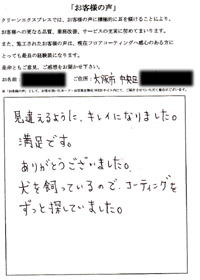 「お客様の声」
クリーンエクスプレスでは、お客様の声に積極的に耳を傾けることにより、
お客様への更なる品質、業務改善、サービスの充実に努めてまいります。
また、施工されたお客様の声は、現在フロアコーティングへ感心のある方に
とっても最良の経験談になります。
是非ともご意見、ご感想をお聞かせ下さい。
お名前 ご住所: 大阪市 中央区
見違えるように、キレイになりました。
満足です。
ありがとうございました。
犬を飼っているので、コーティングを
ずっと探していました。